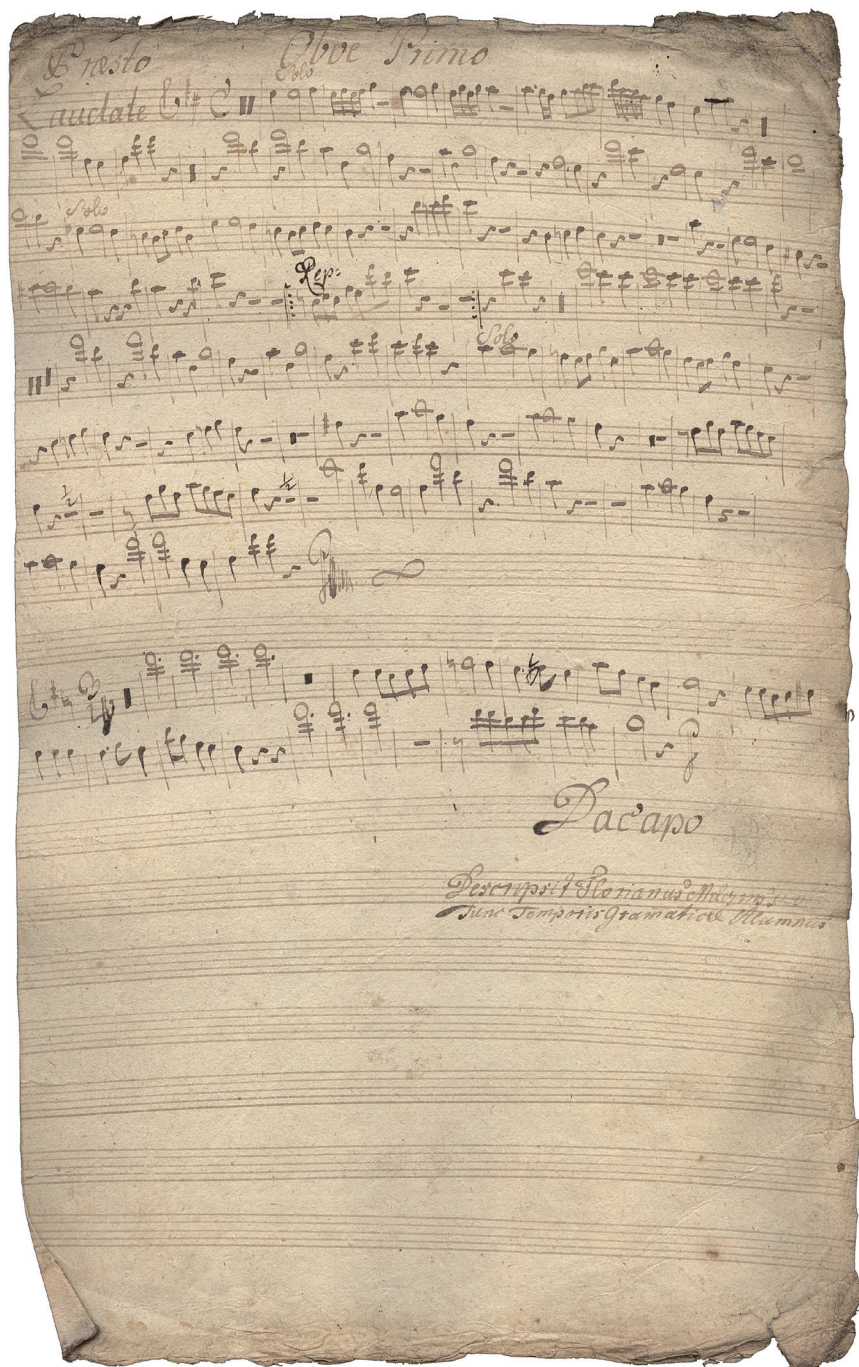 Præsto Oboe Primo
Solo
Laudate
Solo
Rep:
Solo
Dacapo
Descripsit Florianus
Tunc Temporis Gramaticæ Alumnus